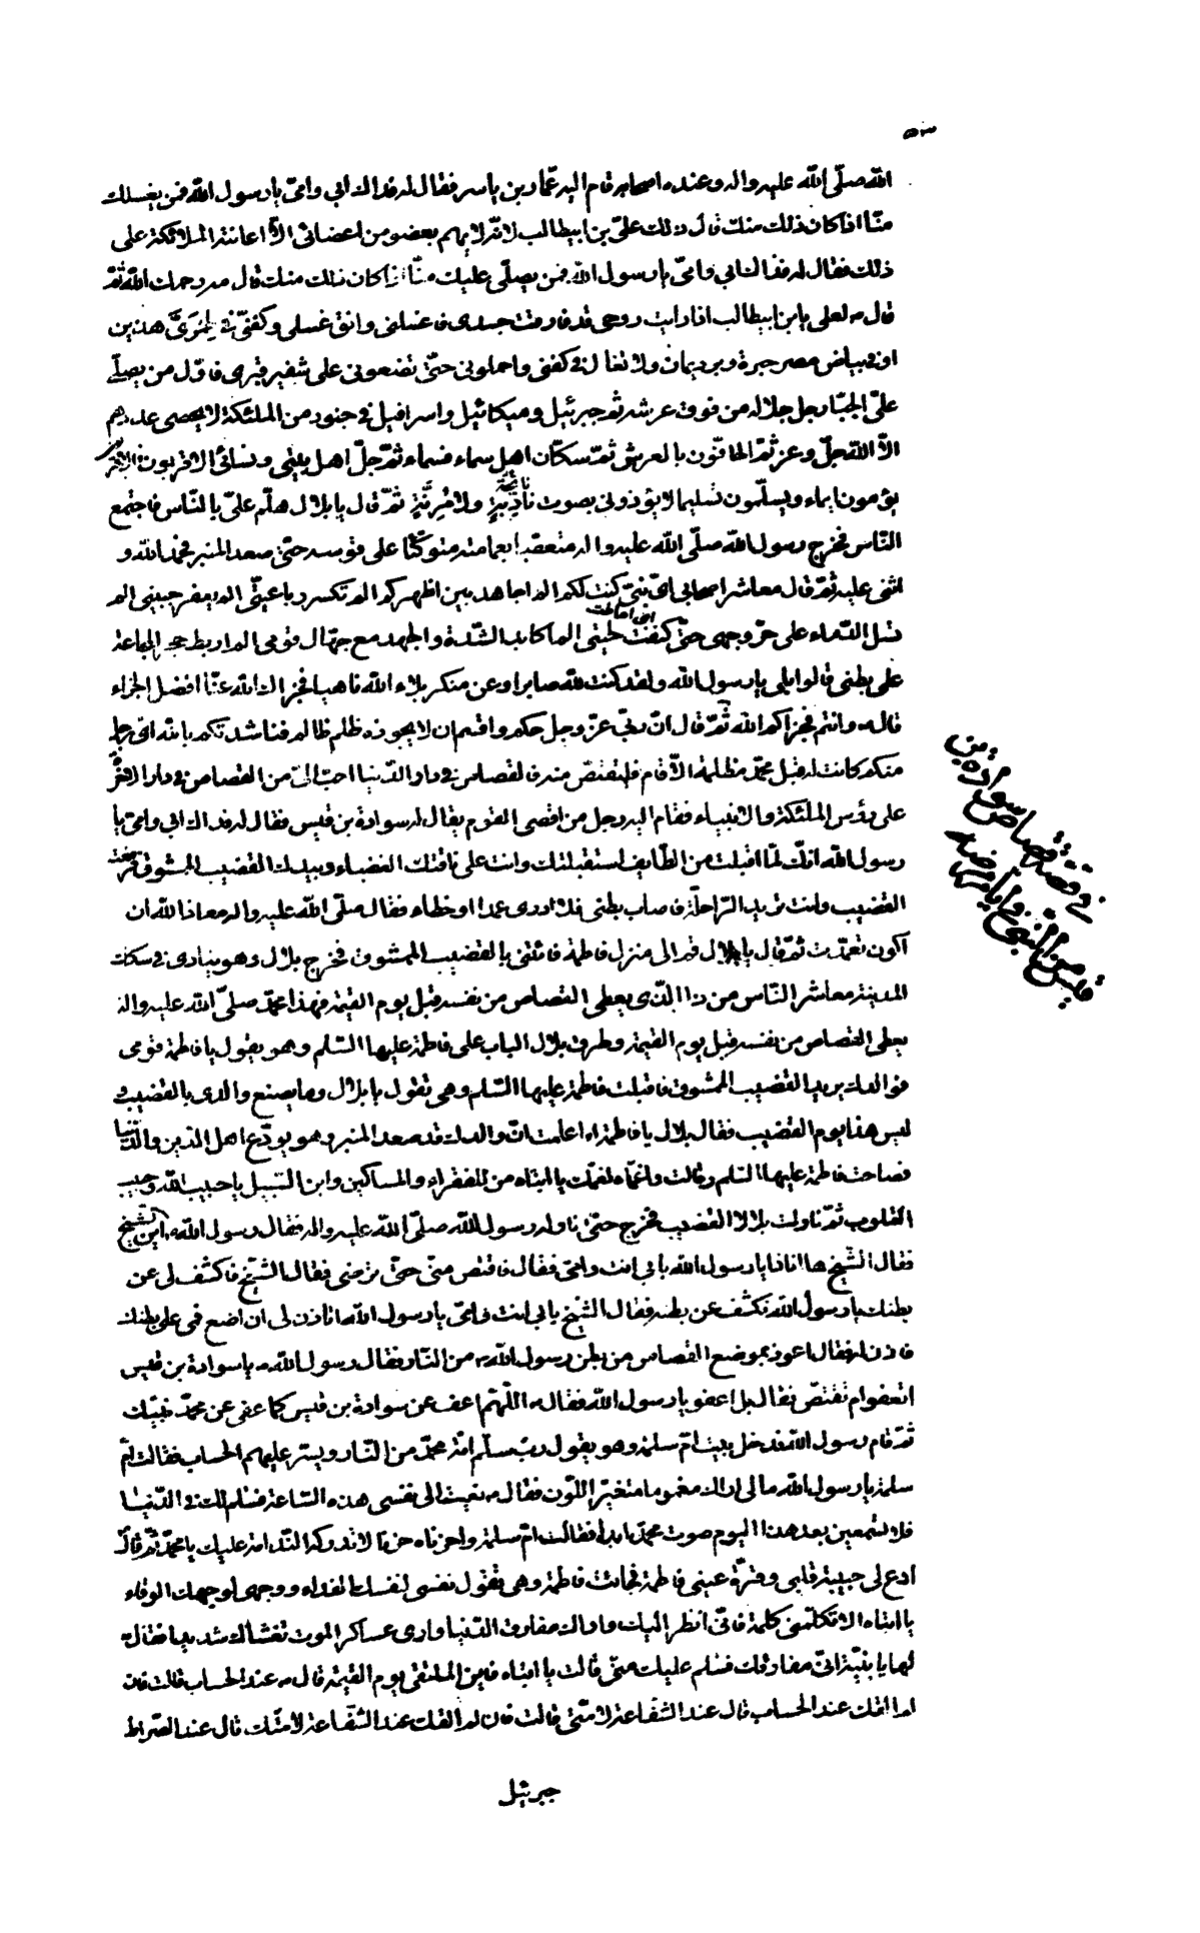 ٥٣
الله صلّى الله عليه واله وعنده اصحابه قام اليه عمّار بن ياسر فقال له فداك ابي وامّي يا رسول الله فمن يغسلك
منّا اذا كان ذلك منك قال ذلك علىّ بن ابيطالب لانّه لا يهم بعضو من اعضائى الّا اعانته الملائكة على
ذلك فقال له فداك ابي وامّي يا رسول الله فمن يصلّى عليك منّا اذا كان ذلك منك قال مه رحمك الله ثمّ
قال ص لعلى يا بن ابيطالب اذا رايت روحى قد فارقت جسدى فاغسلنى وانق غسلى وكفنّى فى طمرىّ هذين
او فى بياض مصر حبرة وبرد يمان ولا تغال فى كفنى واحملونى حتّى تضعونى على شفير قبرى فاوّل من يصلّى
علىّ الجبّار جل جلاله من فوق عرشه ثم جبرئيل وميكائيل واسرافيل فى جنود من الملئكة لا يحصى عددهم
الّا الله جلّ وعز ثمّ الحافّون بالعرش ثمّ سكّان اهل سماء فسماء ثمّ جلّ اهل بيتى ونسائى الاقربون فالاقربون
يؤمون ايماء ويسلّمون تسليما لا يؤذونى بصوت نادبة ولا مرنّة ثمّ قال يا بلال هلّم علىّ بالنّاس فاجتمع
النّاس فخرج رسول الله صلّى الله عليه واله متعصّبا بعمامته متوكّئا على قوسه حتّى صعد المنبر فحمد الله و
اثنى عليه ثمّ قال معاشر اصحابى اىّ نبىّ كنت لكم الم اجاهد بين اظهركم الم تكسر رباعيتى الم يعفر جبينى الم
تسل الدّماء على حرّ وجهى حتّى كنفت لحيتى الم اكابد الشّدة والجهد مع جهّال قومى الم اربط حجر المجاعة
على بطنى قالوا بلى يا رسول الله ولقد كنت لله صابرا وعن منكر بلاء الله ناهيا فجزاك الله عنّا افضل الجزاء
قال ص وانتم فجزاكم الله ثمّ قال انّ ربّى عزّ وجل حكم واقسم ان لا يجوزه ظلم ظالم فناشدتكم بالله اىّ رجل
منكم كانت له قبل محمّد مظلمة الّا قام فليقتصّ منه فالقصاص فى دار الدّنيا احبّ الىّ من القصاص فى دار الاخرة
على رؤس الملئكة والانبياء فقام اليه رجل من اقصى القوم يقال له سوادة بن قيس فقال له فداك ابي وامّي يا
رسول الله انّك لمّا اقبلت من الطّايف استقبلتك وانت على ناقتك العضباء وبيدك القضيب الممشوق فرفعت
القضيب وانت تريد الرّاحلة فاصاب بطنى فلا ادرى عمدا او خطاء فقال صلّى الله عليه واله معاذ الله ان
اكون تعمّدت ثمّ قال يا بلال قم الى منزل فاطمة فائتنى بالقضيب الممشوق فخرج بلال وهو ينادى فى سكك
المدينة معاشر النّاس من ذا الّذى يعطى القصاص من نفسه قبل يوم القيمة فهذا محمّد صلّى الله عليه واله
يعطى القصاص من نفسه قبل يوم القيمة وطرق بلال الباب على فاطمة عليها السّلم وهو يقول يا فاطمة قومى
فوالدك يريد القضيب الممشوق فاقبلت فاطمة عليها السّلم وهى تقول يا بلال وما يصنع والدى بالقضيب و
ليس هذا يوم القضيب فقال بلال يا فاطمة اما علمت انّ والدك قد صعد المنبر وهو يودّع اهل الدّين والدّنيا
فصاحت فاطمة عليها السّلم وقالت واغمّاه لغمّك يا ابتاه من للفقراء والمساكين وابن السّبيل يا حبيب الله وحبيب
القلوب ثمّ ناولت بلالا القضيب فخرج حتّى ناوله رسول الله صلّى الله عليه واله فقال رسول الله ص اين الشّيخ
فقال الشّيخ ها انا ذا يا رسول الله بابى انت وامّى فقال فاقتص منّى حتّى ترضى فقال الشّيخ فاكشف لى عن
بطنك يا رسول الله فكشف عن بطنه فقال الشّيخ بابى انت وامّى يا رسول الله اتاذن لى ان اضع فمى على بطنك
فاذن له فقال اعوذ بموضع القصاص من بطن رسول الله ص من النّار فقال رسول الله ص يا سوادة بن قيس
اتعفو ام تقتصّ فقال بل اعفو يا رسول الله فقال ص اللّهمّ اعف عن سوادة بن قيس كما عفى عن محمّد نبيّك
ثمّ قام رسول الله فدخل بيت امّ سلمة وهو يقول ربّ سلّم امّة محمّد من النّار ويسّر عليهم الحساب فقالت امّ
سلمة يا رسول الله مالى اراك مغموما متغيّر اللّون فقال ص نعيت الى نفسى هذه السّاعة فسلم لك فى الدّنيا
فلا تسمعين بعد هذا اليوم صوت محمّد ابدا فقالت امّ سلمة واحزناه حزنا لا تدركه النّدامة عليك يا محمّد ثمّ قال
ادع لى حبيبة قلبى وقرّة عينى فاطمة فجائت فاطمة وهى تقول نفسى لنفسك الفداء ووجهى لوجهك الوقاء
يا ابتاه الا تكلّمنى كلمة فانّى انظر اليك واراك مفارق الدّنيا وارى عساكر الموت تغشاك شديدا فقال
لها يا بنيّة انّى مفارقك فسلام عليك منّى قالت يا ابتاه فاين الملتقى يوم القيمة قال ص عند الحساب قالت فان
لم القك عند الحساب قال عند الشّفاعة لامّتى قالت فان لم القك عند الشّفاعة لامّتك قال عند الصّراط
جبرئيل
فى قصّة قصاص سوادة بن
قيس من النّبى